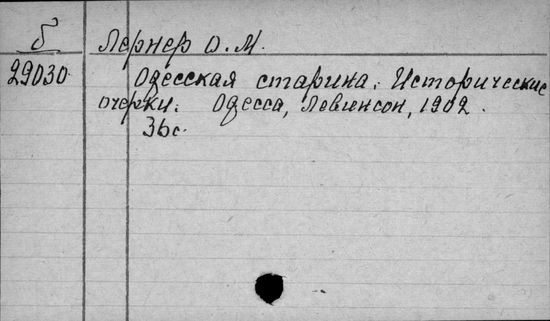 б Лернер О.М.
29030 Одесская старина. Исторические
очерки. Одесса, Левинсон, 1902.
36с.